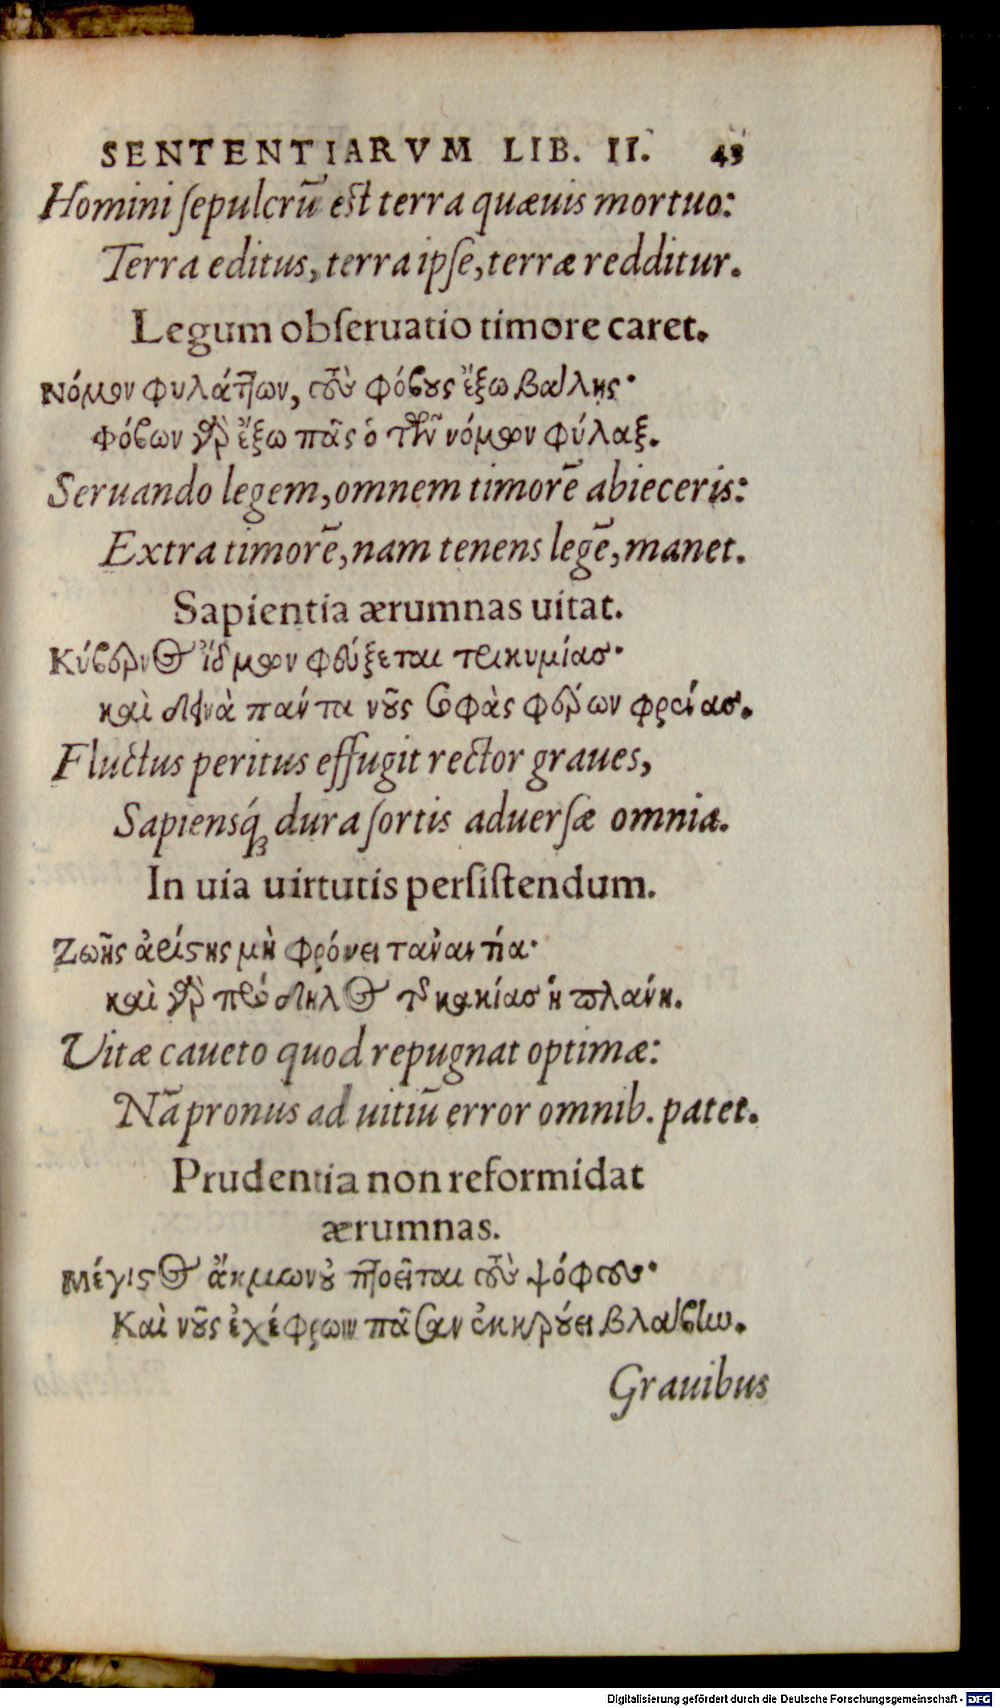 SENTENTIARVM LIB. II. 43
Homini ſepulcrũ est terra quæuis mortuo:
Terra editus, terra ipſe, terræ redditur.
Legum obſeruatio timore caret.
Νόμον φυλάττων, τοὺς φόβους ἔξω βάλλης·
Φόβων γὰρ ἔξω πᾶς ὁ τὸν νόμον φύλαξ.
Seruando legem, omnem timorẽ abieceris:
Extra timorẽ, nam tenens legẽ, manet.
Sapientia ærumnas uitat.
Κύβερνος ἴδμων φεύξεται τρικυμίας·
καὶ δεινὰ πάντα νοῦς σοφὰς φέρων φρένας.
Fluctus peritus effugit rector graues,
Sapiensq́; dura ſortis aduerſæ omnia.
In uia uirtutis perſiſtendum.
Ζωῆς ἀρίστης μὴ φρόνει τἀναντία·
καὶ γὰρ πρόδηλος τῆς κακίας ἡ πλάνη.
Vitæ caueto quod repugnat optimæ:
Nã pronus ad uitiũ error omnib. patet.
Prudentia non reformidat
ærumnas.
Μέγιστος ἄκμων οὐ πτοεῖται τοὺς ψόφους·
Καὶ νοῦς ἐχέφρων πᾶσαν ἐκκρούει βλάβην.
Grauibus
Digitalisierung gefördert durch die Deutsche Forschungsgemeinschaft - DFG